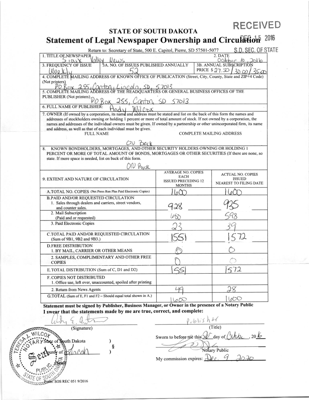 RECEIVED
STATE OF SOUTH DAKOTA
Statement of Legal Newspaper Ownership and Circulation
2016
Return to: Secretary of State, 500 E. Capitol, Pierre, SD 57501-5077
S.D. SEC. OF STATE
1. TITLE OF NEWSPAPER
Sioux Valley News
2. DATE
October 10, 2016
3. FREQUENCY OF ISSUE
Weekly
3A. NO. OF ISSUES PUBLISHED ANNUALLY
52
3B. ANNUAL SUBSCRIPTION
PRICE $
4. COMPLETE MAILING ADDRESS OF KNOWN OFFICE OF PUBLICATION (Street, City, County, State and ZIP+4 Code)
(Not printers)
PO Box 255, Canton, Lincoln, SD 57013
5. COMPLETE MAILING ADDRESS OF THE HEADQUARTERS OR GENERAL BUSINESS OFFICES OF THE
PUBLISHER (Not printers)
PO Box 255, Canton, SD 57013
6. FULL NAME OF PUBLISHER:
Wilcox
7. OWNER (If owned by a corporation, its name and address must be stated and list on the back of this form the names and
addresses of stockholders owning or holding 1 percent or more of total amount of stock. If not owned by a corporation, the
names and addresses of the individual owners must be given. If owned by a partnership or other unincorporated firm, its name
and address, as well as that of each individual must be given)
FULL NAME
COMPLETE MAILING ADDRESS
On Back
8. KNOWN BONDHOLDERS, MORTGAGEES, AND OTHER SECURITY HOLDERS OWNING OR HOLDING 1
PERCENT OR MORE OF TOTAL AMOUNT OF BONDS, MORTGAGES OR OTHER SECURITIES (If there are none, so
state. If more space is needed, list on back of this form.
On Back
9. EXTENT AND NATURE OF CIRCULATION
AVERAGE NO. COPIES
EACH
ISSUED PRECEDING 12
MONTHS
ACTUAL NO. COPIES
ISSUED
NEAREST TO FILING DATE
A. TOTAL NO. COPIES (Net Press Run Plus Paid Electronic Copies)
1600
1600
B. PAID AND/OR REQUESTED CIRCULATION
1. Sales through dealers and carriers, street vendors,
and counter sales.
928
935
2. Mail Subscription
(Paid and or requested)
598
3. Paid Electronic Copies
23
39
C. TOTAL PAID AND/OR REQUESTED CIRCULATION
(Sum of 9B1, 9B2 and 9B3.)
1551
1572
D. FREE DISTRIBUTION
1. BY MAIL, CARRIER OR OTHER MEANS
0
0
2. SAMPLES, COMPLIMENTARY AND OTHER FREE
COPIES
0
0
E. TOTAL DISTRIBUTION (Sum of C, D1 and D2)
1551
1572
F. COPIES NOT DISTRIBUTED
1. Office use, left over, unaccounted, spoiled after printing
2. Return from News Agents
49
28
G. TOTAL (Sum of E, F1 and F2 – Should equal total shown in A.)
1600
1600
Statement must be signed by Publisher, Business Manager, or Owner in the presence of a Notary Public
I swear the statements made by me are true, correct, and complete:
(Signature)
Publisher
(Title)
State of South Dakota
Lincoln
Sworn to before me this
day of
Notary Public
My commission expires:
Dec 9 2020